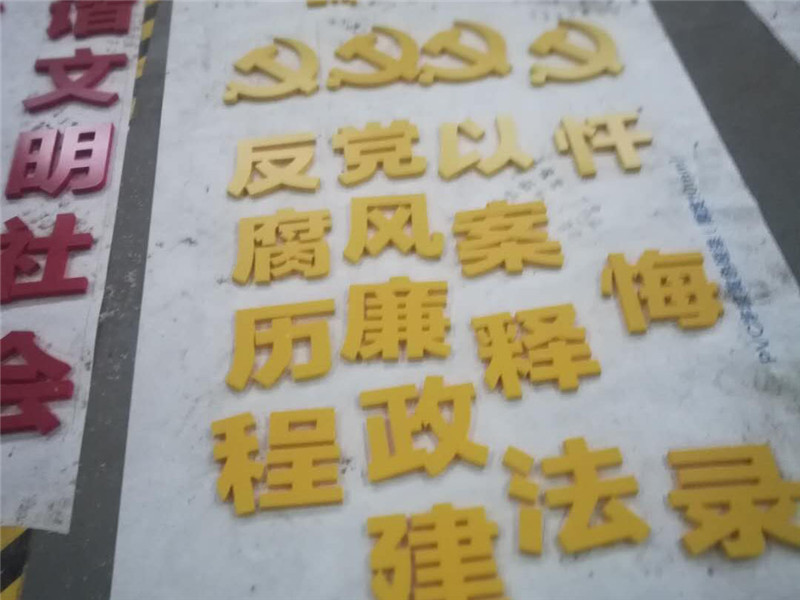 谐文明社会
反腐历程
党风廉政建
以案释法
忏悔录
PVC